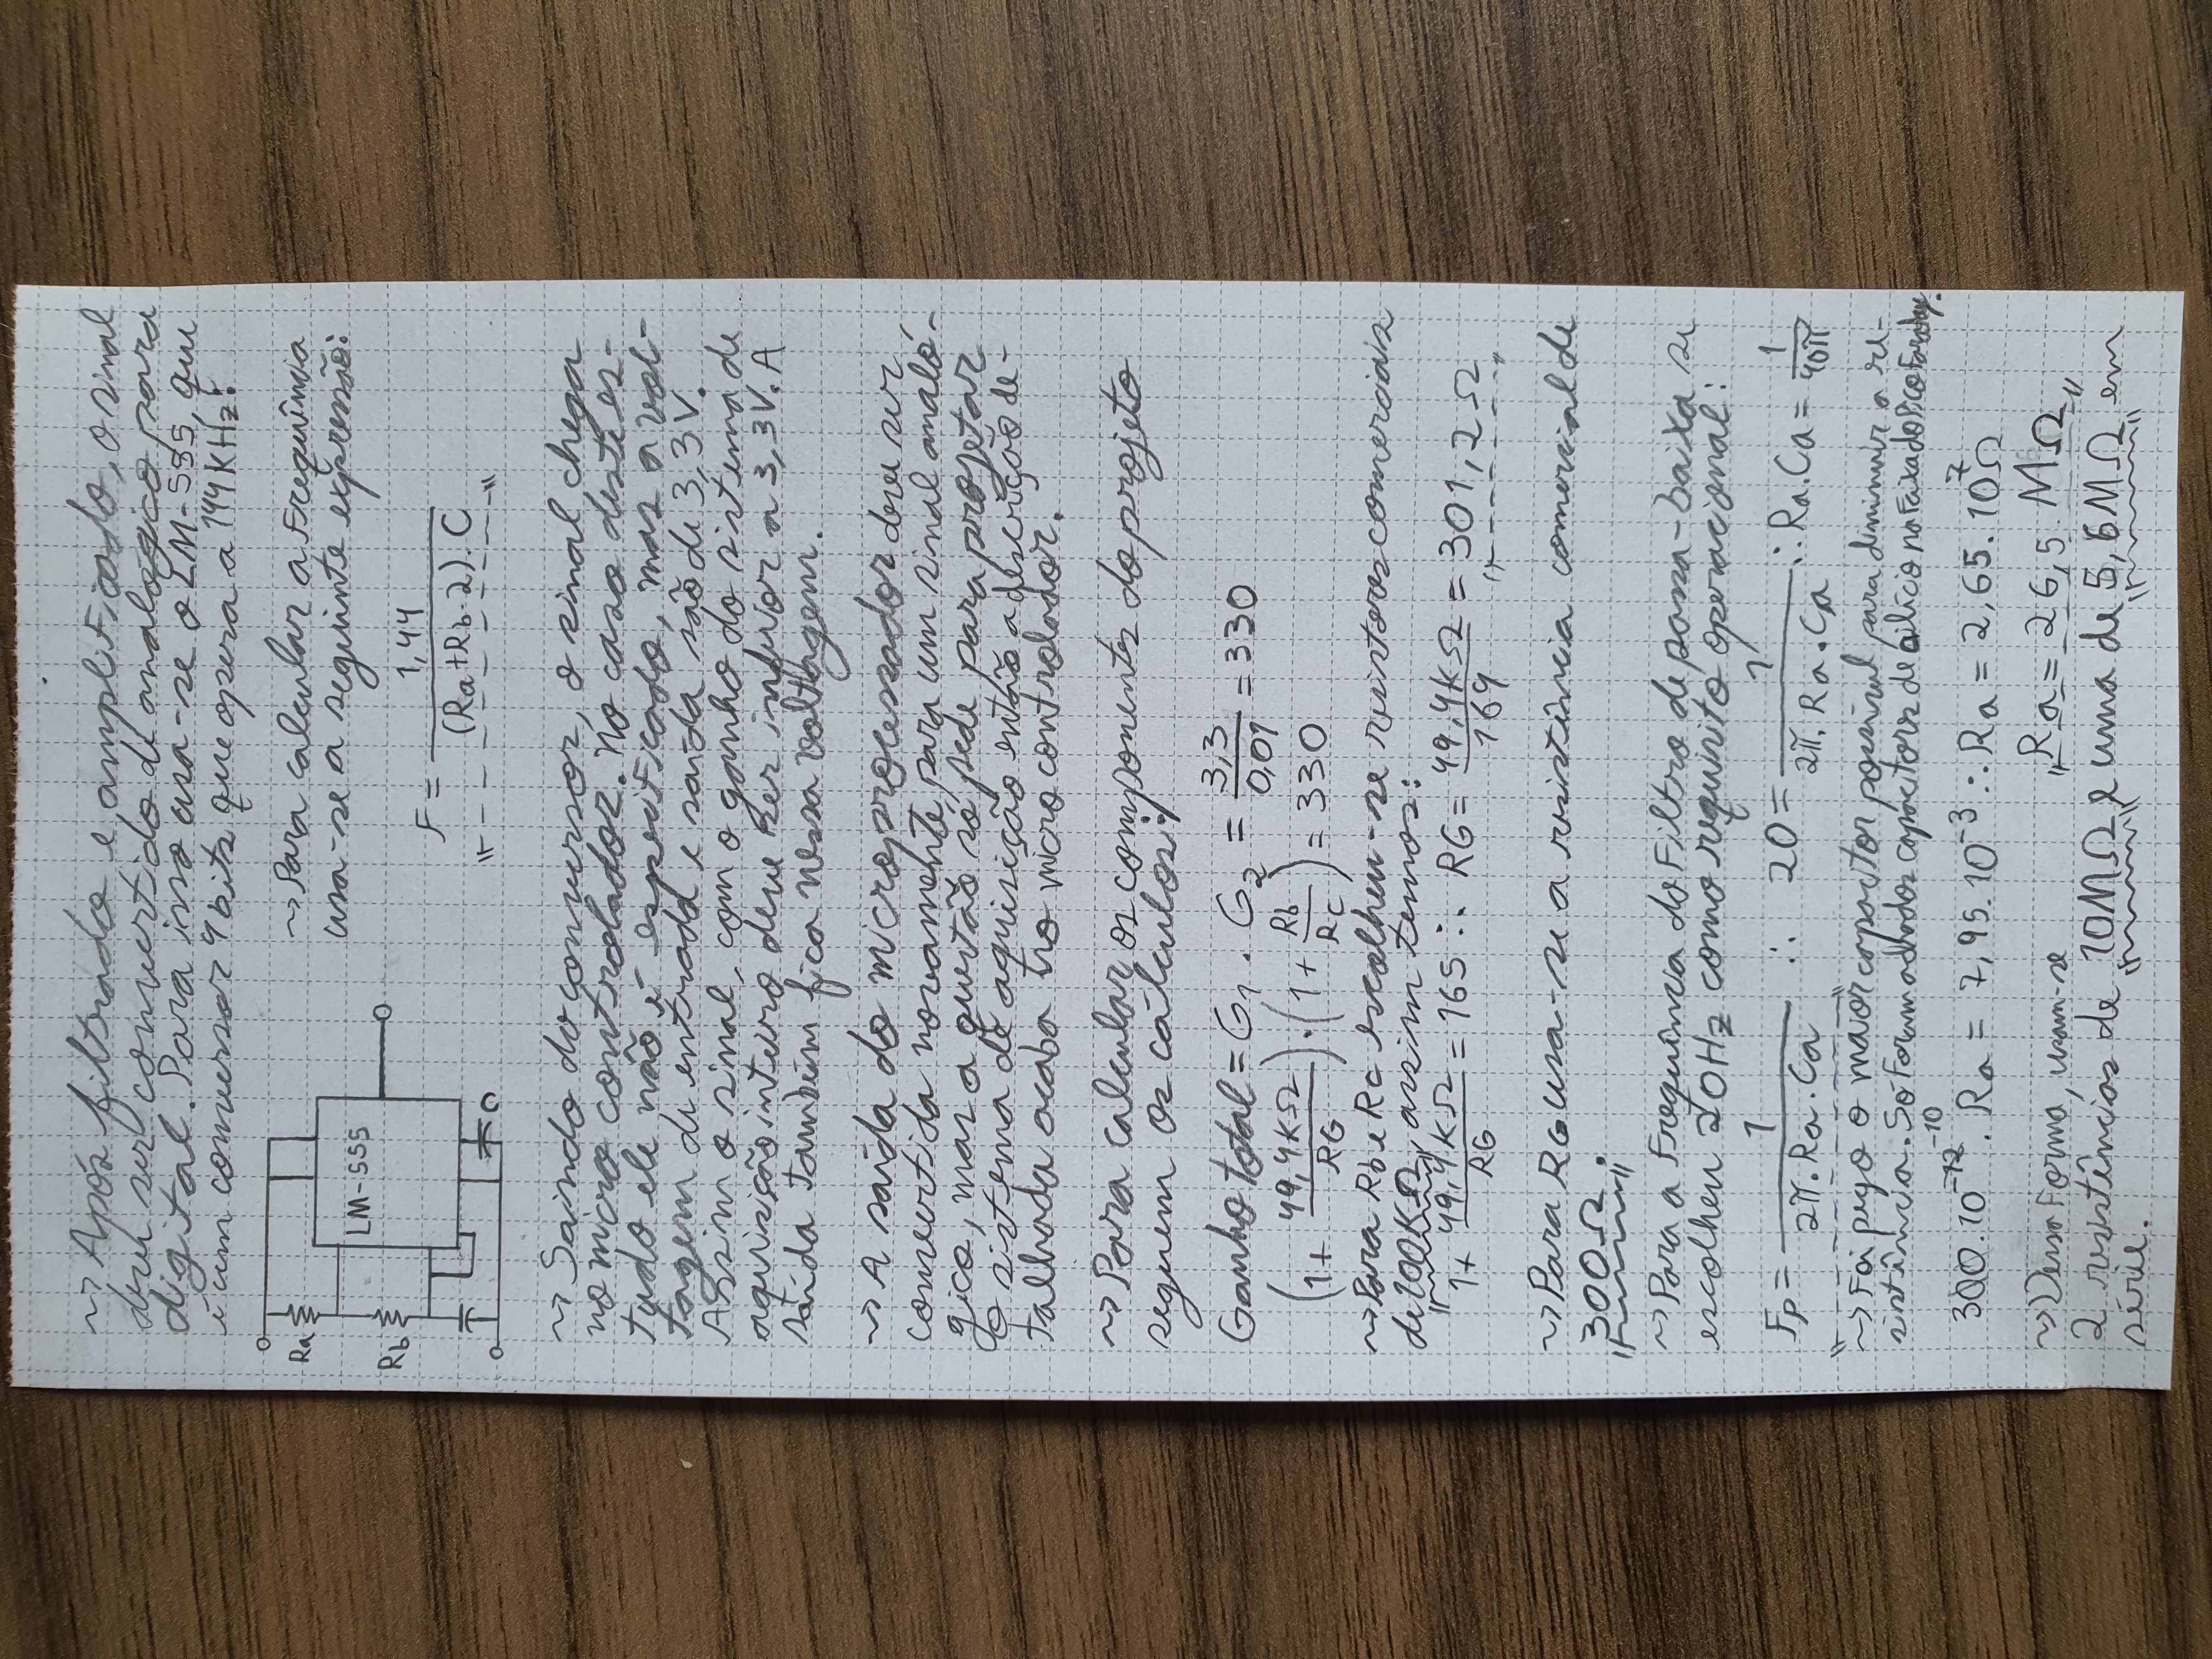 ~> Após filtrado e amplificado, o sinal
deve ser convertido de analógico para
digital. Para isso usa-se o LM-555, que
é um conversor 4 bits que opera a 144KHz:
Ra
Rb
LM-555
C
~> Para calcular a Frequência
usa-se a seguinte expressão:
F = 1,44 / (Ra+Rb.2).C
~> Saindo do conversor, o sinal chega
no micro controlador. No caso deste es-
tudo ele não é especificado, mas a vol-
tagem de entrada e saída são de 3,3V.
Assim o sinal, com o ganho do sistema de
aquisição inteiro deve ser inferior a 3,3V. A
saída também fica nessa voltagem.
~> A saída do microprocessador deve ser
convertida novamente para um sinal analó-
gico, mas a questão só pede para projetar
o sistema de aquisição então a descrição de-
talhada acaba no micro controlador.
~> Para calcular os componentes do projeto
seguem os cálculos:
Ganho total = G1 . G2 = 3,3 / 0,01 = 330
(1 + 49,4KΩ / RG) . (1 + Rb / Rc) = 330
~> Para Rb e Rc escolheu-se resistores comerciais
de 100KΩ, assim temos:
1 + 49,4KΩ / RG = 165 ∴ RG = 49,4KΩ / 164 = 301,2Ω
~> Para RG usa-se a resistência comercial de
300Ω.
~> Para a Frequência do Filtro de passa-baixa se
escolheu 20Hz como requisito operacional:
Fp = 1 / 2π.Ra.Ca ∴ 20 = 1 / 2π.Ra.Ca ∴ Ra.Ca = 1 / 40π
~> Foi pego o maior capacitor possível para diminuir a re-
sistência. Só Foram achados capacitores de silício na Faixa do Pico Faraday.
300.10^-12 -10 . Ra = 7,95.10^-3 ∴ Ra = 2,65.10^7 Ω
Ra = 26,5 MΩ
~> Dessa Forma, usam-se
2 resistências de 10MΩ e uma de 5,6MΩ em
série.